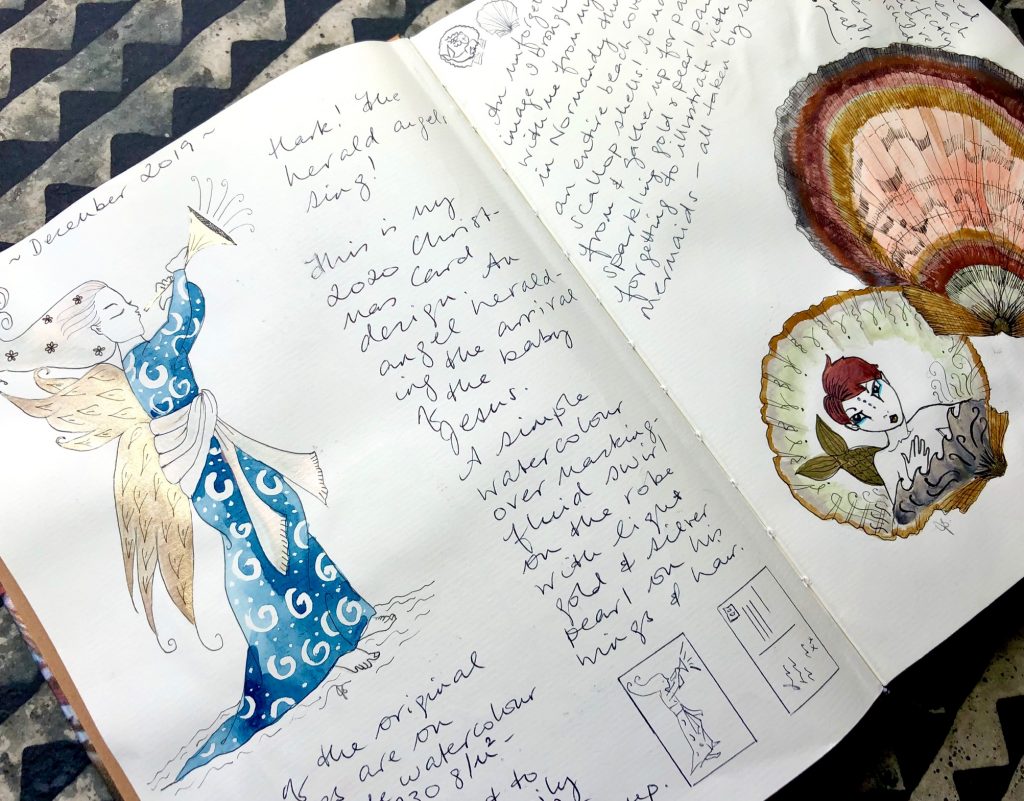 ~ December 2019 ~
Hark! The
herald angels
sing!
This is my
2020 Christ-
mas Card
design. An
angel herald-
ing the arrival
of the baby
Jesus.
A simple
watercolour
over masking
fluid swirl
on the robe
with light
gold & silver
pearl on his
wings & hair.
of the original
are on
watercolour
30 g/m² –
to
up.
An unforget
image I brough
with me from my
in Normandy this
an entire beach cove
scallop shells! So ma
from & gather up for pa
sparkling gold & pearl pain
forgetting to illustrate with
mermaids – all taken by su
each